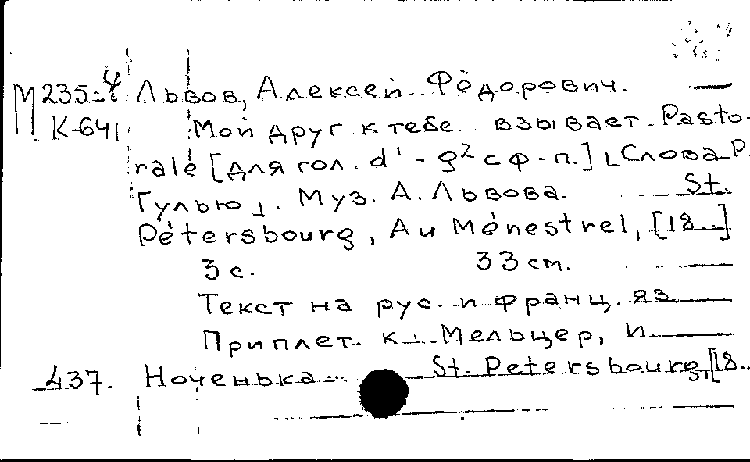 М 235-4 Львов, Алексей Фёдорович.
К-641 Мой друг к тебе взывает. Pasto-
rale [для гол. d¹ - g² с ф-п.] Слова Р.
Гулью. Муз. А. Львова. St.
Pétersbourg, Au Ménestrel, [18..]
3 с. 33 cm.
Текст на рус. и франц. яз.
Приплет. к: Мельцер, И.
437. Ноченька St. Petersbourg, [18..